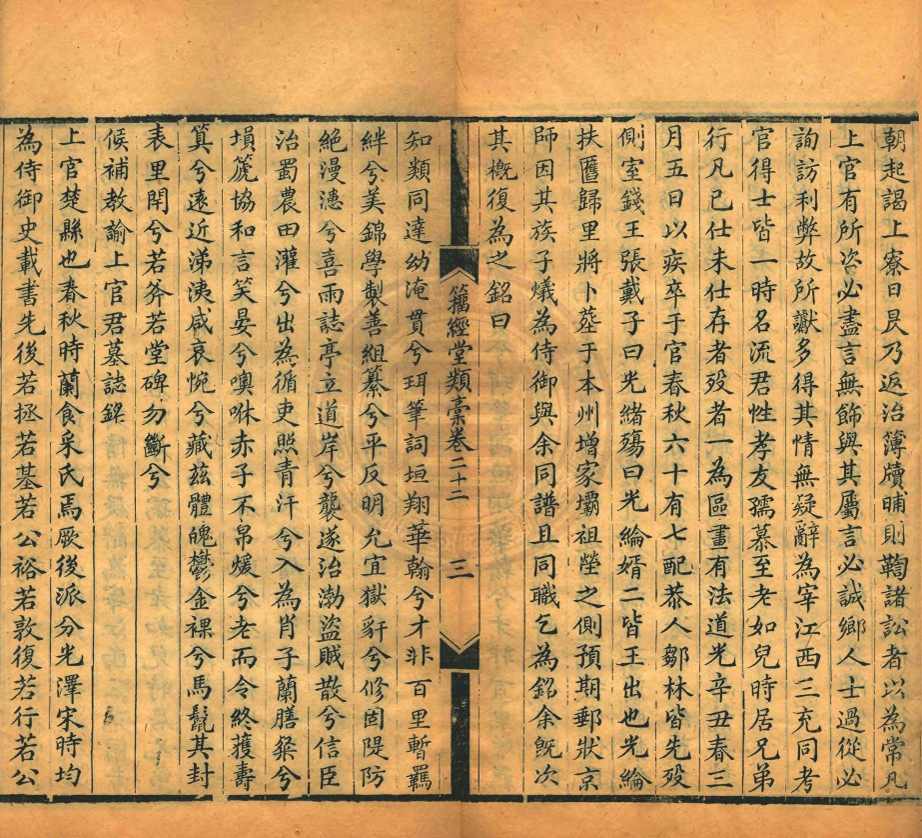 朝起謁上寮日昃乃返治簿牘晡則鞫諸訟者以為常凡
上官有所次必盡言無飾與其屬言必誠鄉人士過從必
詢訪利弊故所讞多得其情無疑辭為宰江西三充同考
官得士皆一時名流君性孝友孺慕至老如兒時居兄弟
行凡已仕未仕存者歿者一為區畫有法道光辛丑春三
月五日以疾卒于官春秋六十有七配恭人鄒林皆先歿
側室錢王張戴子曰光緒殤曰光綸婿二皆王出也光綸
扶匶歸里將卜葬于本州增家壩祖塋之側預期郵狀京
師因其族子爔為侍御與余同譜且同職乞為銘余既次
其概復為之銘曰
籀經堂類稾卷二十二 三
知類同達幼淹貫兮珥筆詞垣翔華翰兮才非百里暫羈
絆兮美錦學製善組纂兮平反明允宜獄豻兮修固隄防
絕漫漶兮喜雨誌亭立道岸兮龔遂治渤盜賊散兮信臣
治蜀農田灌兮出為循吏照青汗兮入為肖子蘭膳粲兮
塤篪協和言笑晏兮噢咻赤子不帛煖兮老而令終獲壽
算兮遠近涕洟咸哀惋兮藏茲體魄鬱金祼兮馬鬣其封
表里閈兮若斧若堂碑勿斷兮
候補教諭上官君墓誌銘
上官楚縣也春秋時蘭食采氏焉厥後派分光澤宋時均
為侍御史載書先後若拯若基若公裕若敦復若行若公